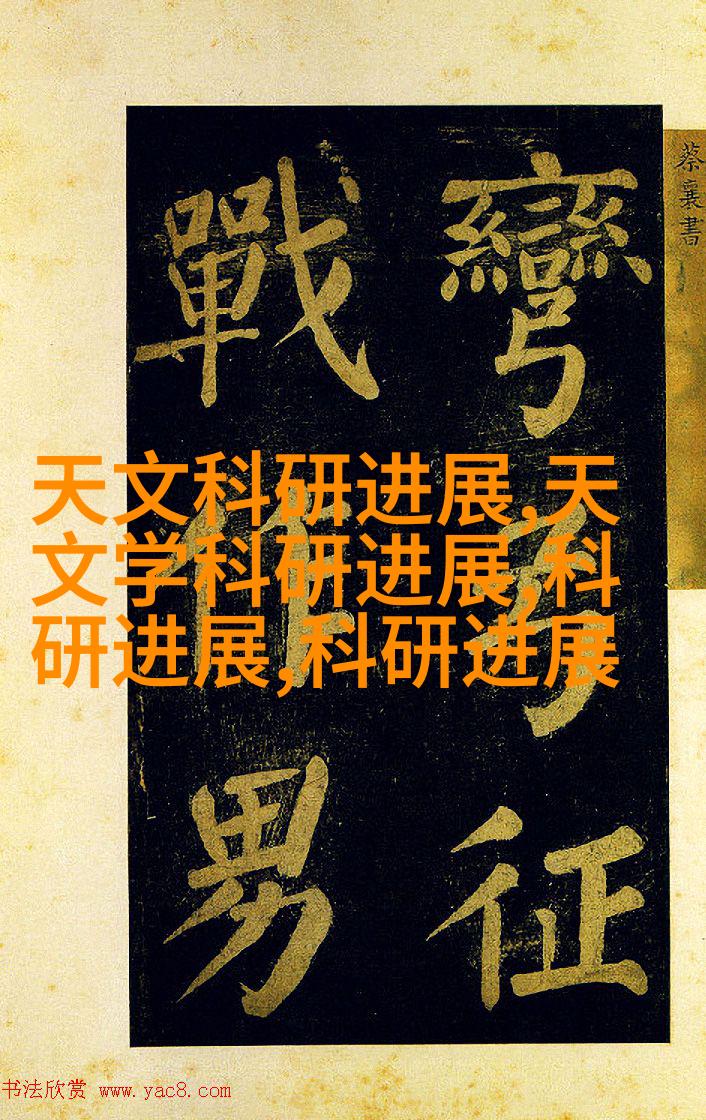 蔡襄書
彎弓征
戰作男
天文科研进展,天
文学科研进展,科
研进展,科研进展
书法欣赏 www.yac8.com